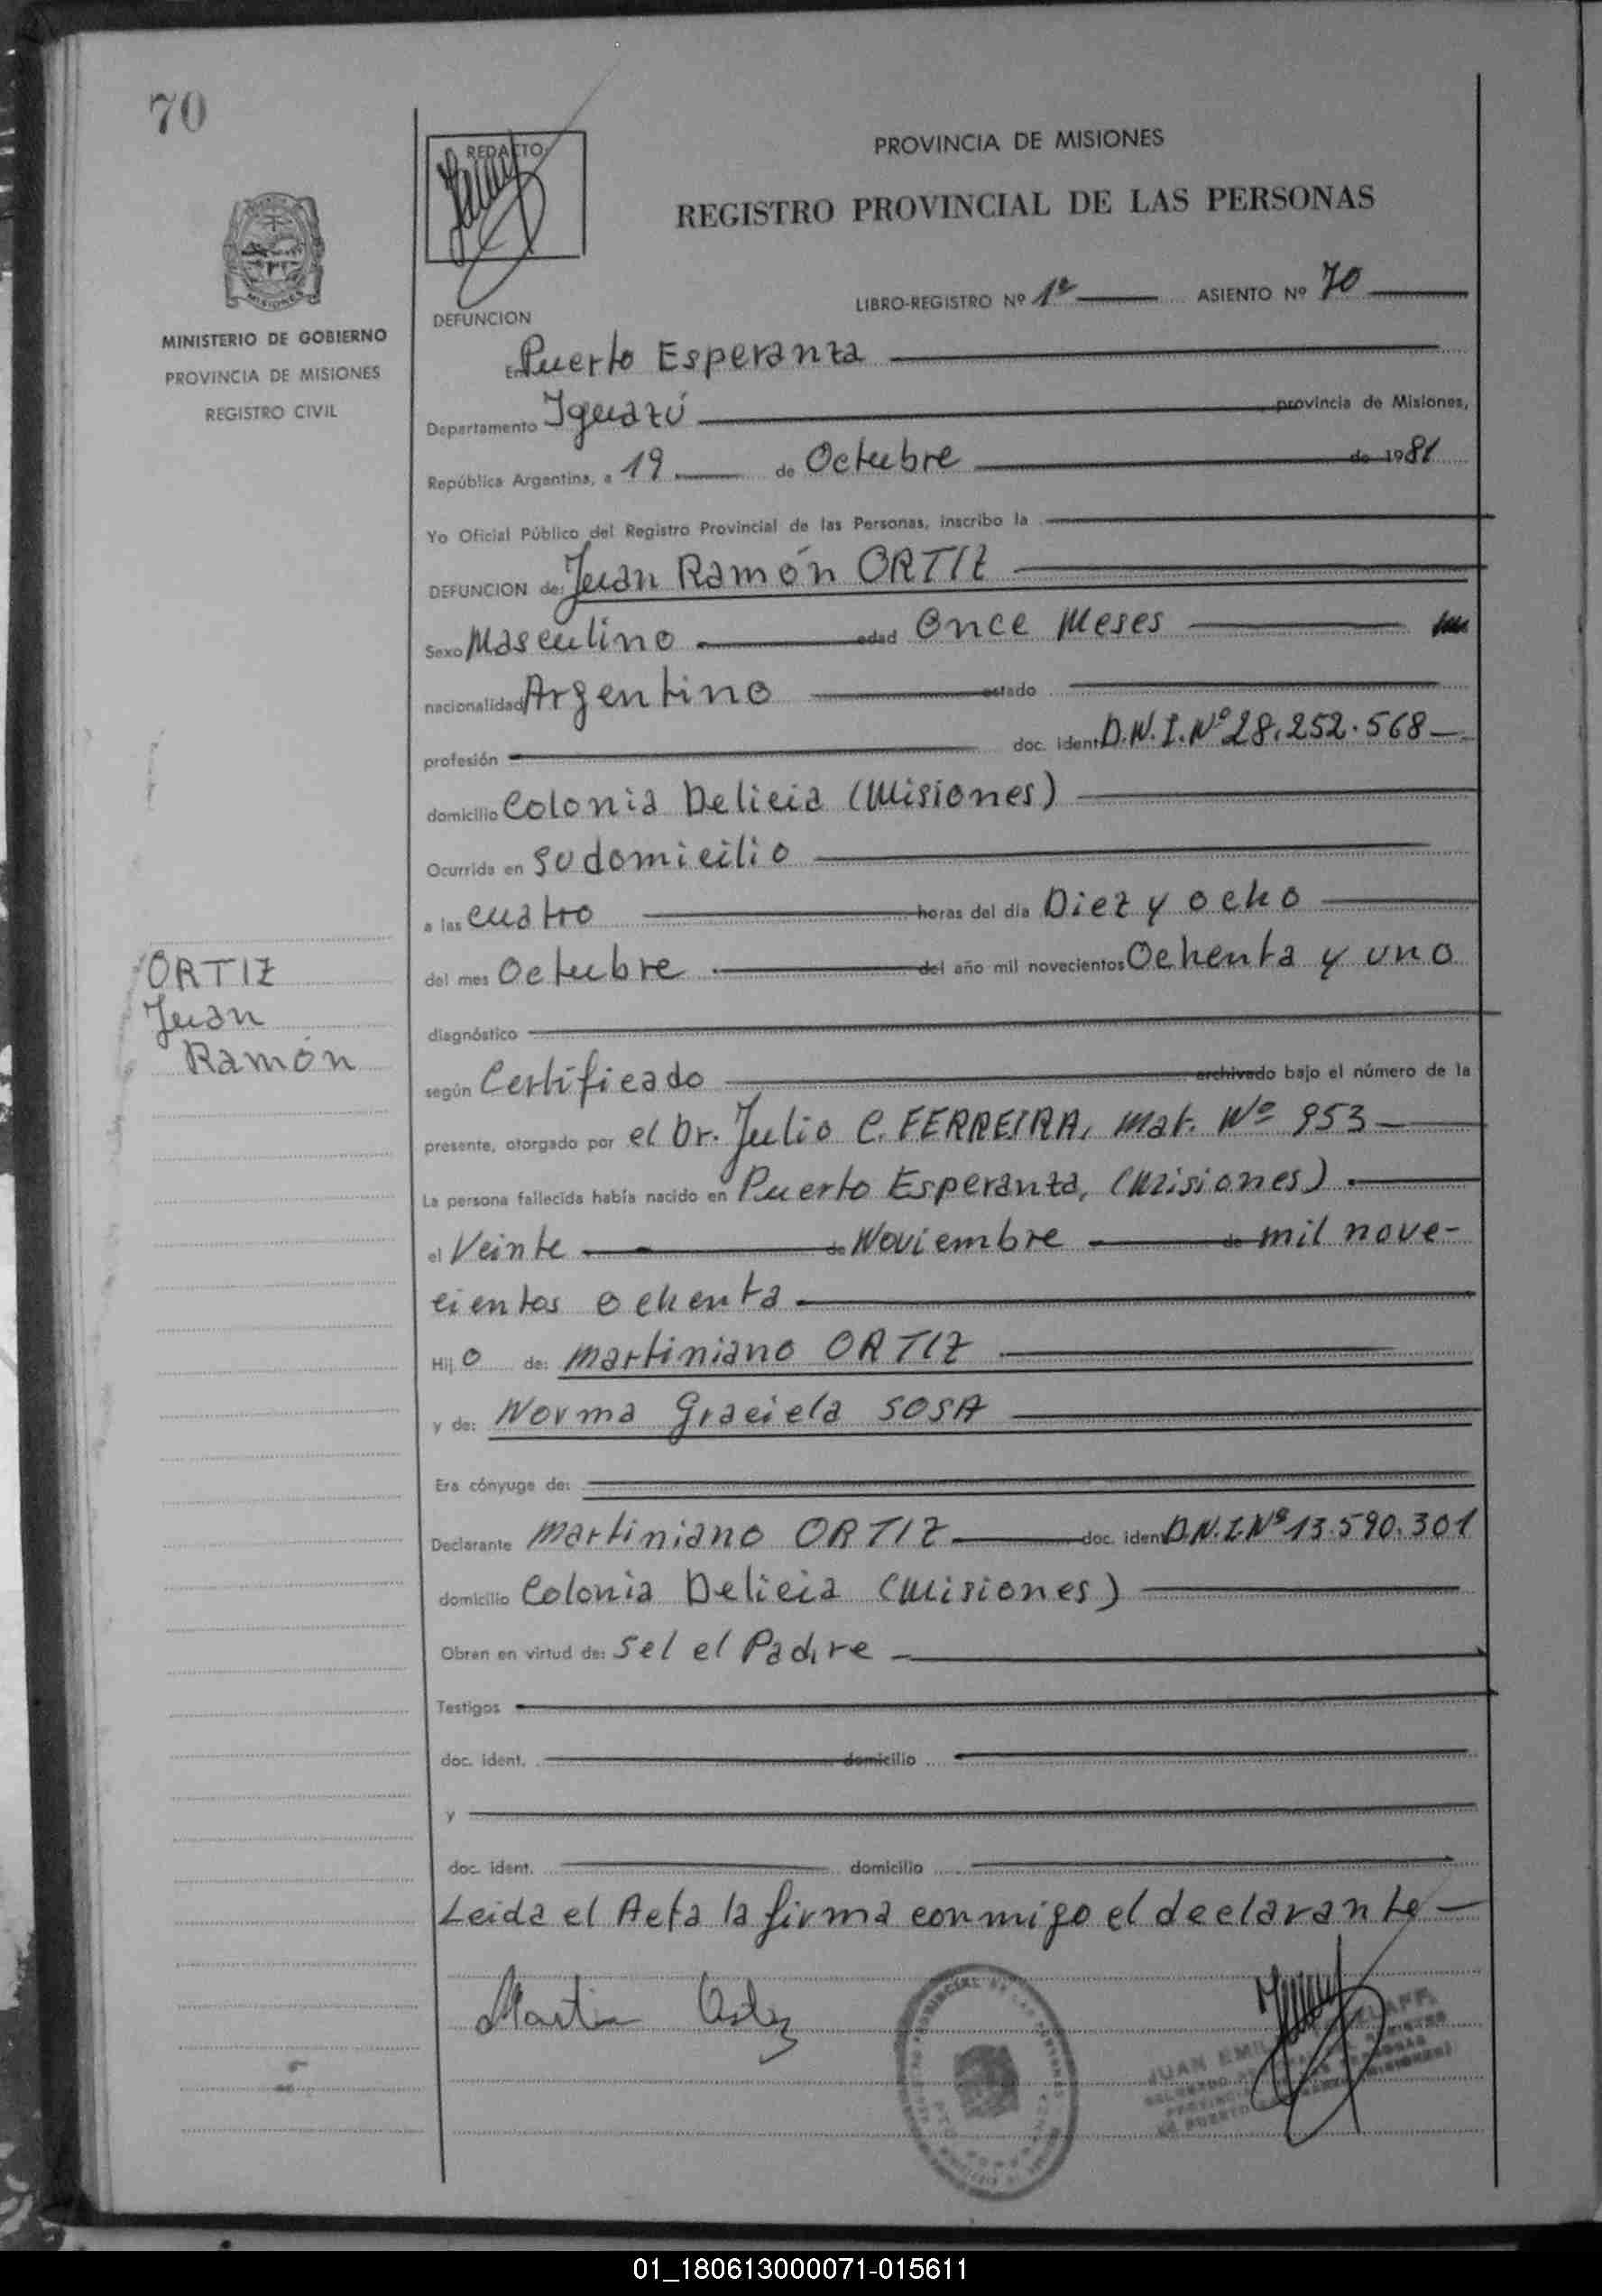 70
REDACTO:
PROVINCIA DE MISIONES
REGISTRO PROVINCIAL DE LAS PERSONAS
MISIONES
MINISTERIO DE GOBIERNO
PROVINCIA DE MISIONES
REGISTRO CIVIL
LIBRO-REGISTRO Nº 1º ASIENTO Nº 70
DEFUNCION
En Puerto Esperanza
Departamento Iguazú provincia de Misiones,
República Argentina, a 19 de Octubre de 1981
Yo Oficial Público del Registro Provincial de las Personas, inscribo la
DEFUNCION de: Juan Ramón ORTIZ
Sexo Masculino edad Once Meses
nacionalidad Argentino estado
profesión doc. ident. D.N.I.Nº 28.252.568
domicilio Colonia Delicia (Misiones)
Ocurrida en su domicilio
a las cuatro horas del día Diez y ocho
del mes Octubre del año mil novecientos Ochenta y uno
diagnóstico
según Certificado archivado bajo el número de la
presente, otorgado por el Dr. Julio C. FERREIRA, Mat. Nº 953
La persona fallecida había nacido en Puerto Esperanza, (Misiones)
el Veinte de Noviembre de mil nove-
cientos ochenta
Hijo de: Martiniano ORTIZ
y de: Norma Graciela SOSA
Era cónyuge de:
Declarante Martiniano ORTIZ doc. ident. D.N.I.Nº 13.590.301
domicilio Colonia Delicia (Misiones)
Obran en virtud de: Sel el Padre
Testigos
doc. ident. domicilio
y
doc. ident. domicilio
Leida el Acta la firma conmigo el declarante
ORTIZ
Juan
Ramón
Martin Ortiz
JUAN EMIL
01_180613000071-015611